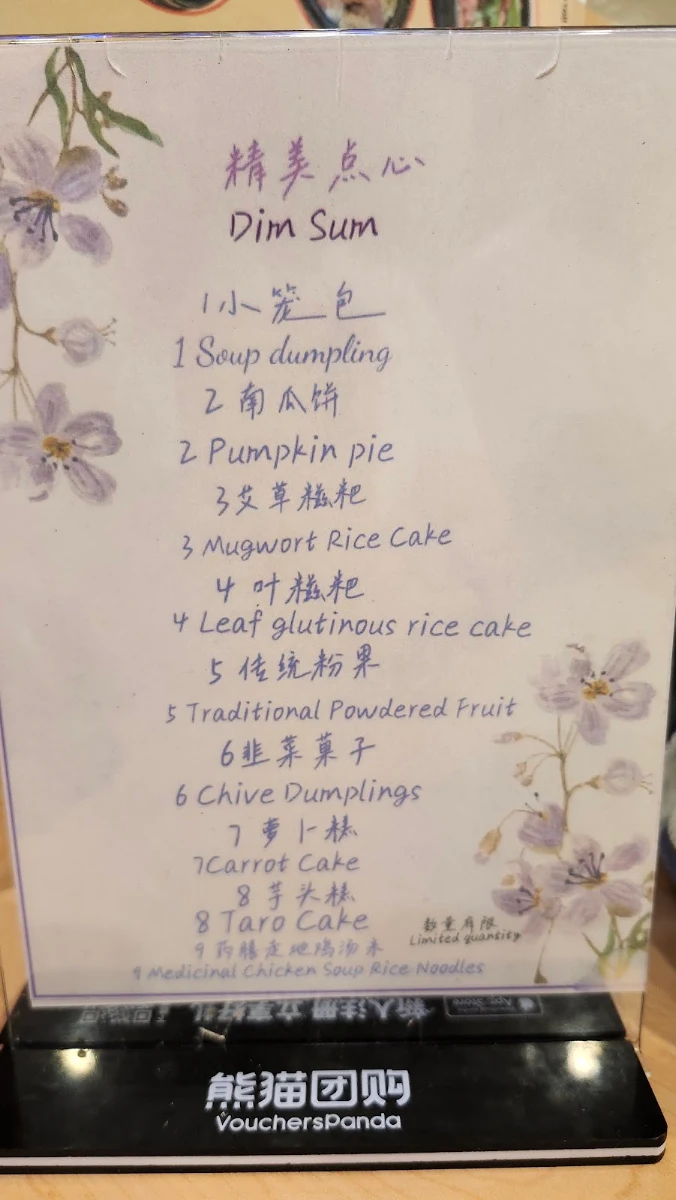 精美点心
Dim Sum
1小笼包
1 Soup dumpling
2 南瓜饼
2 Pumpkin pie
3艾草糍粑
3 Mugwort Rice Cake
4 叶糍粑
4 Leaf glutinous rice cake
5 传统粉果
5 Traditional Powdered Fruit
6韭菜菓子
6 Chive Dumplings
7 萝卜糕
7Carrot Cake
8 芋头糕
8 Taro Cake
数量有限
Limited quantity
9 药膳走地鸡汤米
9 Medicinal Chicken Soup Rice Noodles
新人注册 立享好礼
App Store
熊猫团购
VouchersPanda